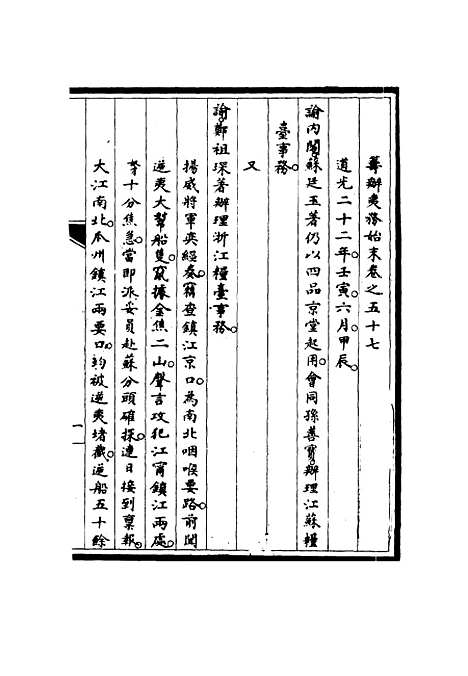 籌辦夷務始末卷之五十七
道光二十二年壬寅六月甲辰。
諭內閣蘇廷玉著仍以四品京堂起用。會同孫善寶。辦理江蘇糧
臺事務。
又
諭鄭祖琛著辦理浙江糧臺事務。
揚威將軍奕經奏。竊查鎮江京口。為南北咽喉要路。前聞
逆夷大幫船隻。竄據金焦二山。聲言攻犯江甯鎮江兩處。
等十分焦急。當即派妥員赴蘇分頭確探。連日接到稟報。
大江南北。瓜州鎮江兩要口。均被逆夷堵截。逆船五十餘